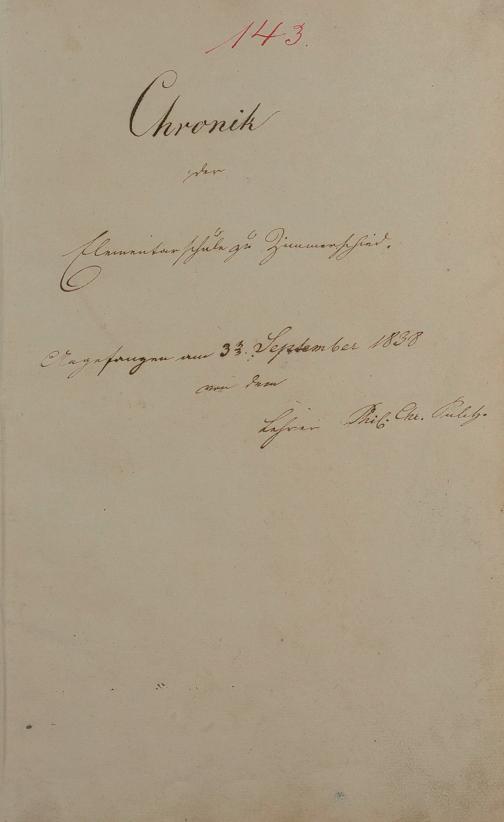 143.
Chronik
der
Elementarschule zu Zimmerschied.
Angefangen am September 1838
von dem
Lehrer Phil. Chr.